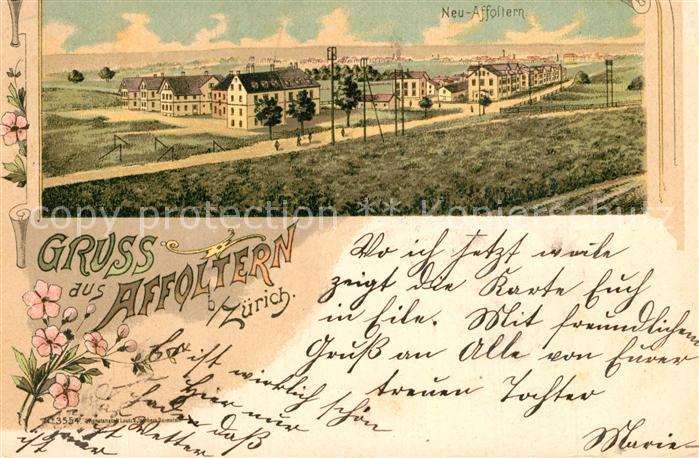 Neu-Affoltern
copy protection ** Kopierschutz
GRUSS
aus AFFOLTERN
b/Zürich.
Wo ich jetzt weile
zeigt die Karte Euch
in Eile. Mit freundlichem
Gruß an Alle von Eurer
treuen Tochter
Marie
Es ist wirklich schön
hier nur
Wetter daß
ist nur
No 3554.